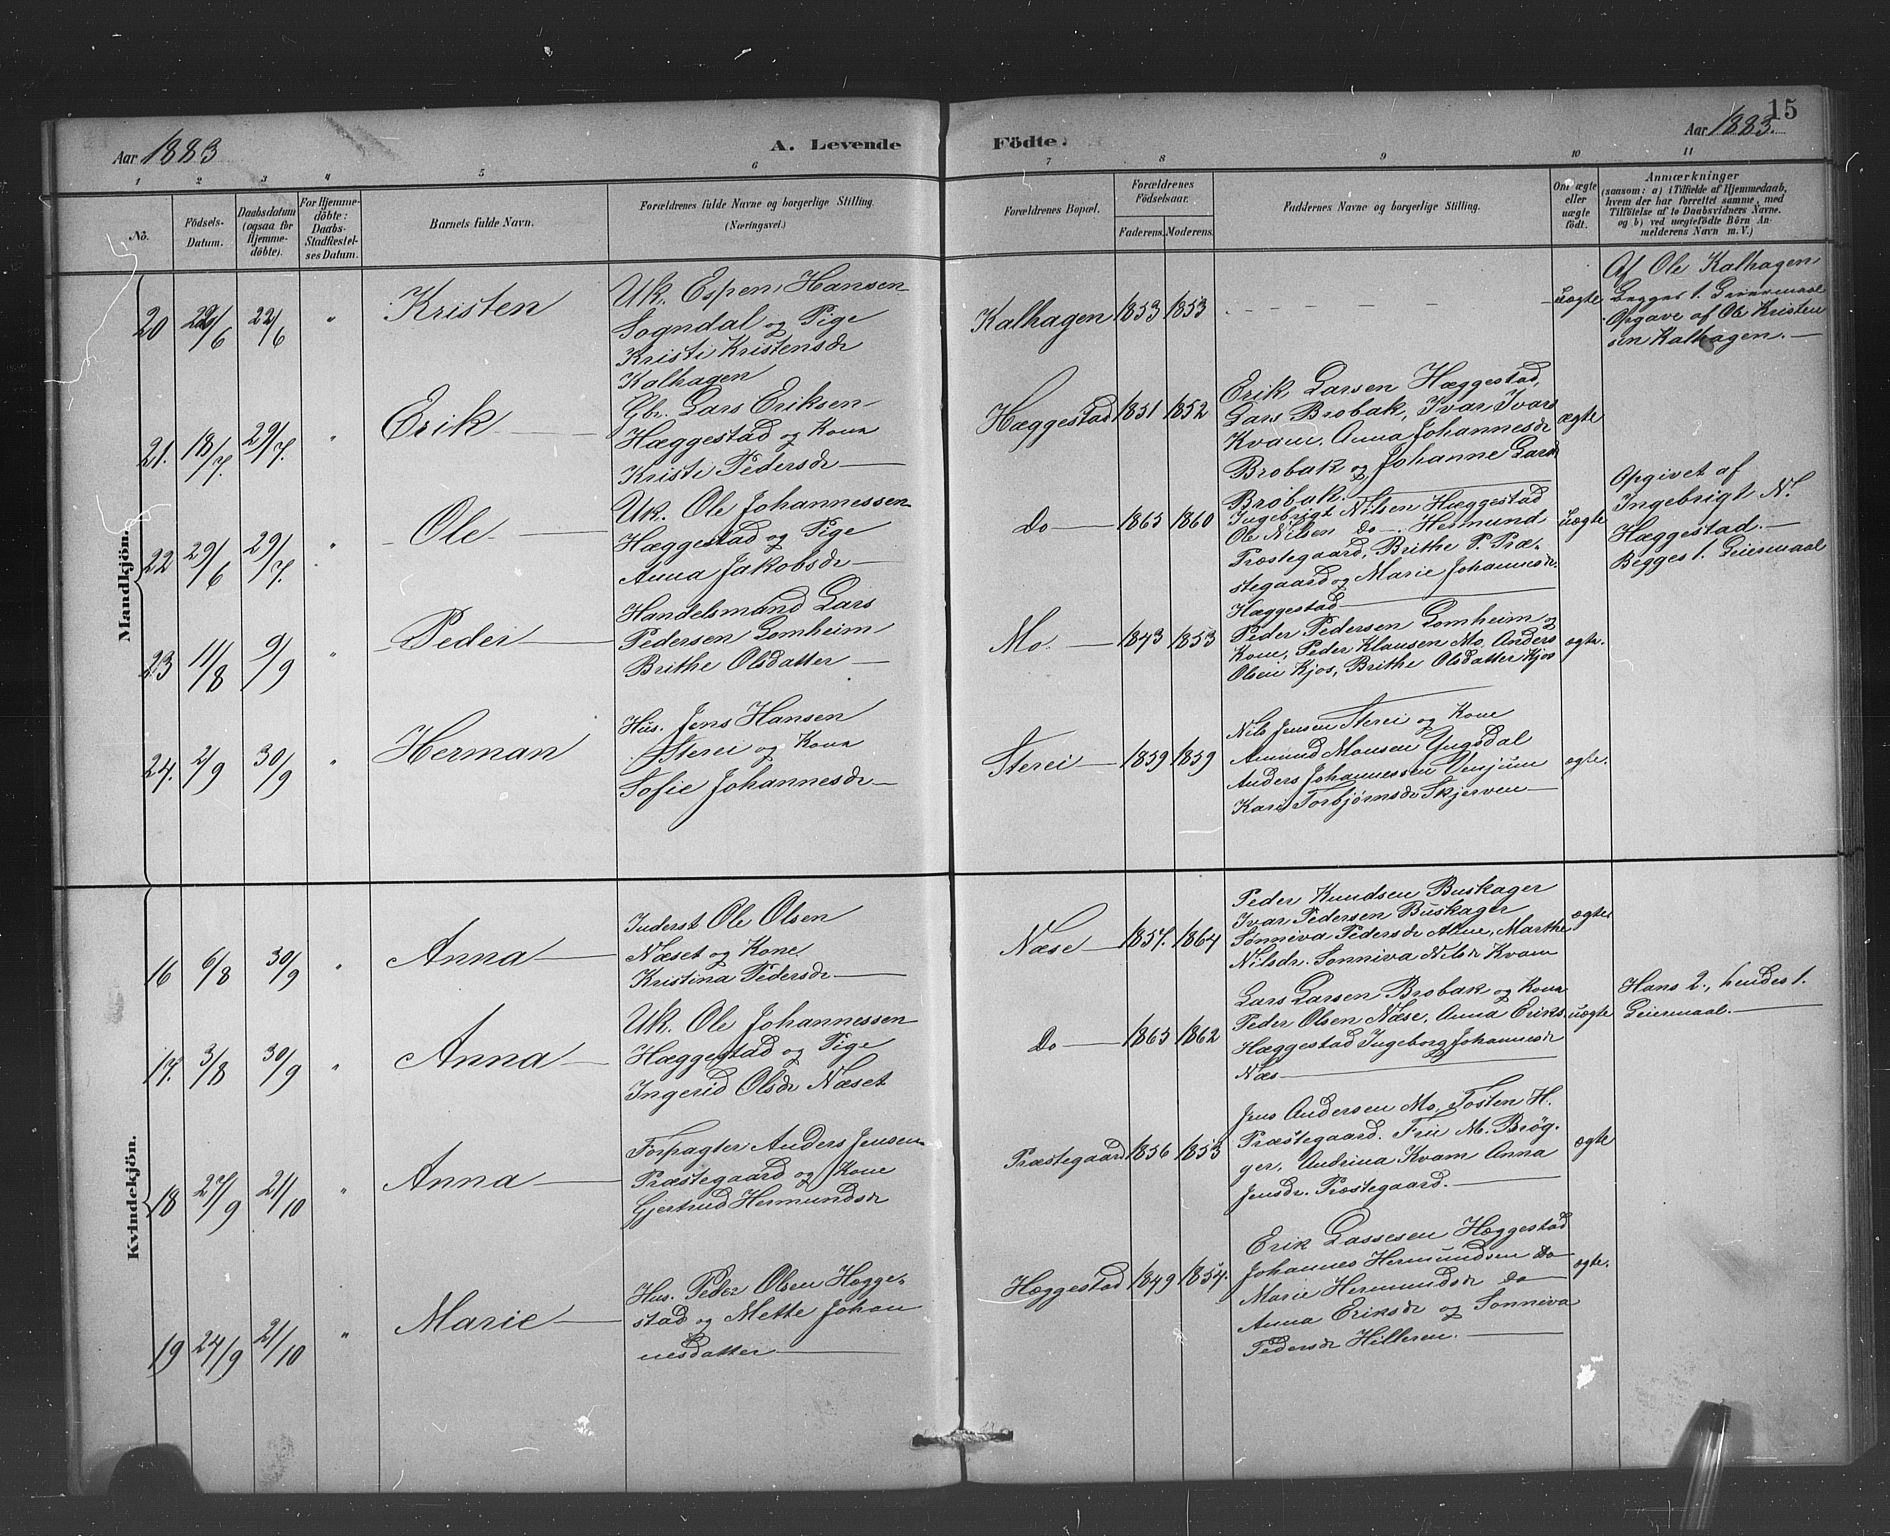 15
Aar 1883
A. Levende
Födte.
Aar 1883.
1 2 3 4 5 6 7 8 9 10 11
No.
Födsels-
Datum.
Daabsdatum
(ogsaa for
Hjemme-
döbte).
For Hjemme-
döbte:
Daabs-
Stadfæstel-
ses Datum.
Barnets fulde Navn.
Forældrenes fulde Navne og borgerlige Stilling.
(Næringsvei.)
Forældrenes Bopæl.
Forældrenes
Födselsaar.
Faderens. Moderens.
Faddernes Navne og borgerlige Stilling.
Om ægte
eller
uægte
födt.
Anmærkninger
(saasom: a) i Tilfælde af Hjemmedaab,
hvem der har forrettet samme, med
Tilföielse af to Daabsvidners Navne.
og b) ved uægtefödte Börn An-
melderens Navn m. V.)
Mandkjön.
20 22/6 22/6 " Kristen
Uk. Espen Hansen
Sogndal og Pige
Kristi Kristensdr
Kalhagen
Kalhagen 1853 1853
uægte
Af Ole Kalhagen
Begges 1. Leiermaal
Opgave af Ole Kristen
sen Kalhagen.
21. 18/7. 29/7. " Erik
Gbr. Lars Eriksen
Hæggestad og Kone
Kristi Pedersdr
Hæggestad 1851 1852
Erik Larsen Hæggestad,
Lars Brobak, Ivar Ivars
Kvam, Anna Johannesdr
Brobak og Johanne Larsd
Brobak.
ægte
22 29/6 29/7. " Ole
Uk. Ole Johannessen
Hæggestad og Pige
Anna Jakobsdr
Do 1865 1860
Ingebrigt Nilsen Hæggestad
Ole Nilsen do Hermund
Præstegaard, Brithe P. Præ-
stegaard og Marie Johannesdr
Hæggestad
uægte
Opgivet af
Ingebrigt N.
Hæggestad.
Begges 1. Leiermaal
23 11/8 9/9 " Peder
Handelsmand Lars
Pedersen Lomheim
Brithe Olsdatter
Mo. 1843 1853
Peder Pedersen Lomheim og
Kone, Peder Klausen Mo, Anders
Olsen Kjos, Brithe Olsdatter Kjos
ægte.
24. 2/9 30/9 " Herman
Hus. Jens Hansen
Sterei og Kone
Sofie Johannesdr
Sterei 1859 1859
Nils Jensen Sterei og Kone
Amund Monsen Yngsdal
Anders Johannessen Venjum
Kari Torbjørnsdr Skjerven
ægte.
Kvindekjön.
16 6/8 30/9 " Anna
Inderst Ole Olsen
Næset og Kone
Kristina Pedersdr
Næse 1857. 1864
Peder Knudsen Buskager
Ivar Pedersen Buskager
Sønniva Pedersdr Marthe
Nilsdr. Sonniva Nilsdr Kvam
ægte
17. 3/8 30/9 " Anna
Uk. Ole Johannessen
Hæggestad og Pige
Ingerid Olsdr Næset
Do 1865 1862
Lars Larsen Brobak og Kone
Peder Olsen Næse, Anna Eriks
Hæggestad Ingeborg Johannesdr
Næs
uægte
Hans 2., hendes 1.
Leiermaal.
18 27/9 21/10 " Anna
Forpagter Anders Jensen
Præstegaard og Kone
Gjertrud Hermundsdr
Præstegaard 1856 1853
Jens Andersen Mo, Tosten H.
Præstegaard. Fru M. Brøg-
ger, Andrina Kvam Anna
Jensdr. Præstegaard.
ægte
19 24/9 21/10 " Marie
Hus. Peder Olsen Hægge-
stad og Mette Johan
nesdatter
Hæggestad 1849 1854.
Erik Lassesen Hæggestad
Johannes Hermundsen do
Marie Hermundsdr do
Anna Eriksdr og Sonniva
Pedersdr Hilleren.
ægte.